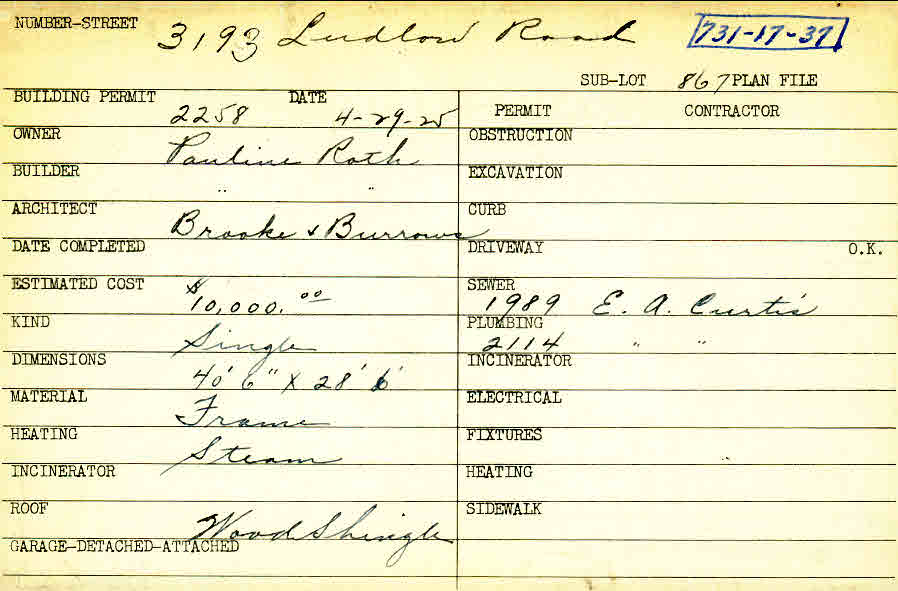 NUMBER-STREET 3193 Ludlow Road 731-17-37
SUB-LOT 867 PLAN FILE
BUILDING PERMIT 2258 DATE 4-29-25
OWNER Pauline Roth
BUILDER " "
ARCHITECT Brooke & Burrows
DATE COMPLETED
ESTIMATED COST $10,000.00
KIND Single
DIMENSIONS 40' 6" X 28' 6'
MATERIAL Frame
HEATING Steam
INCINERATOR
ROOF Wood Shingle
GARAGE-DETACHED-ATTACHED
PERMIT CONTRACTOR
OBSTRUCTION
EXCAVATION
CURB
DRIVEWAY O.K.
SEWER 1989 E. A. Curtis
PLUMBING 2114 " "
INCINERATOR
ELECTRICAL
FIXTURES
HEATING
SIDEWALK